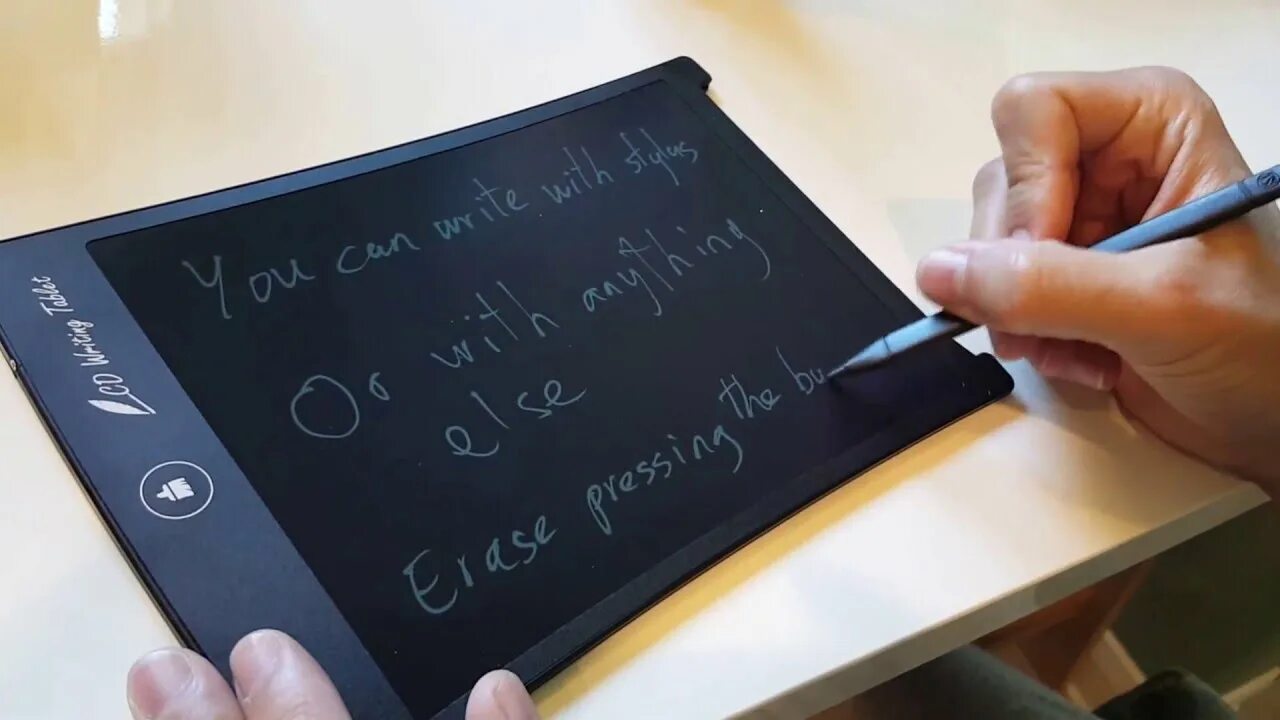 You can write with stylus
Or with anything
else
Erase pressing the bu
LCD Writing Tablet